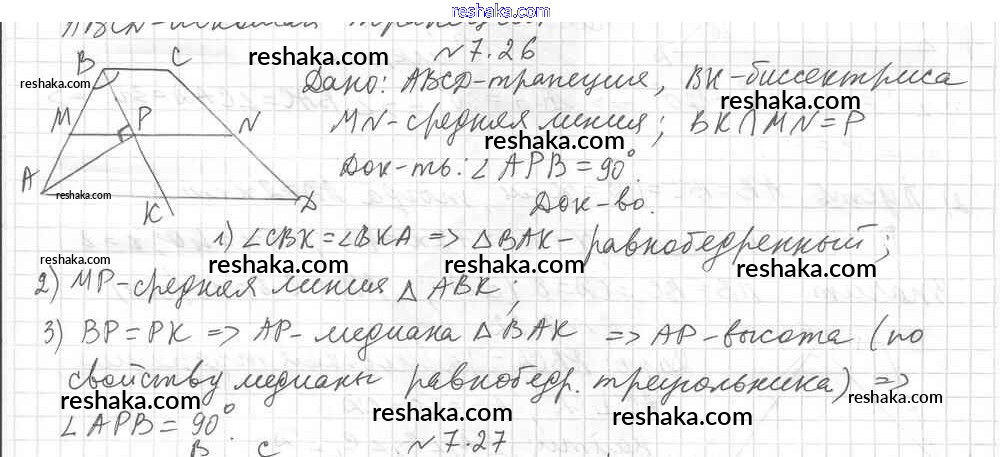 reshaka.com
ABCD-искомая трапеция
№7.26
Дано: ABCD-трапеция, BK-биссектриса
MN-средняя линия; BK∩MN=P
Док-ть: ∠APB=90°.
Док-во.
B C
M P N
A K D
1) ∠CBK=∠BKA => △BAK-равнобедренный;
2) MP-средняя линия △ABK;
3) BP=PK => AP-медиана △BAK => AP-высота (по
свойству медианы равнобедр. треугольника) =>
∠APB=90°.
№7.27
B C
reshaka.com
reshaka.com
reshaka.com
reshaka.com
reshaka.com
reshaka.com
reshaka.com
reshaka.com
reshaka.com
reshaka.com
reshaka.com
reshaka.com
reshaka.com